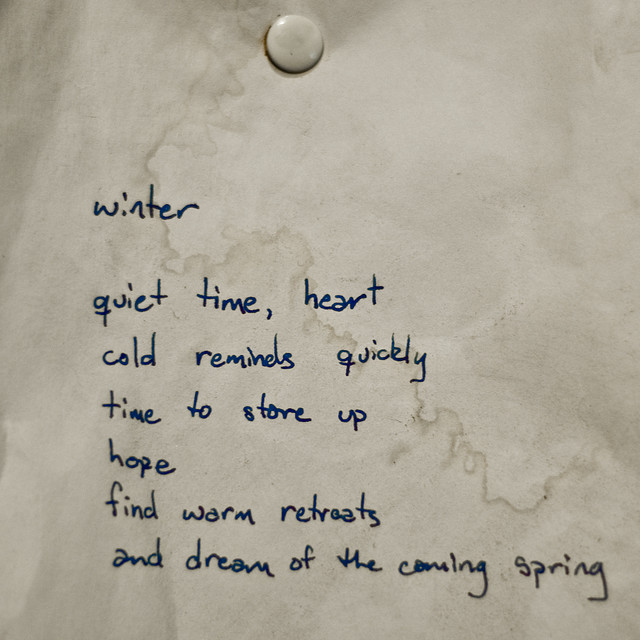 winter
quiet time, heart
cold reminds quickly
time to store up
hope
find warm retreats
and dream of the coming spring